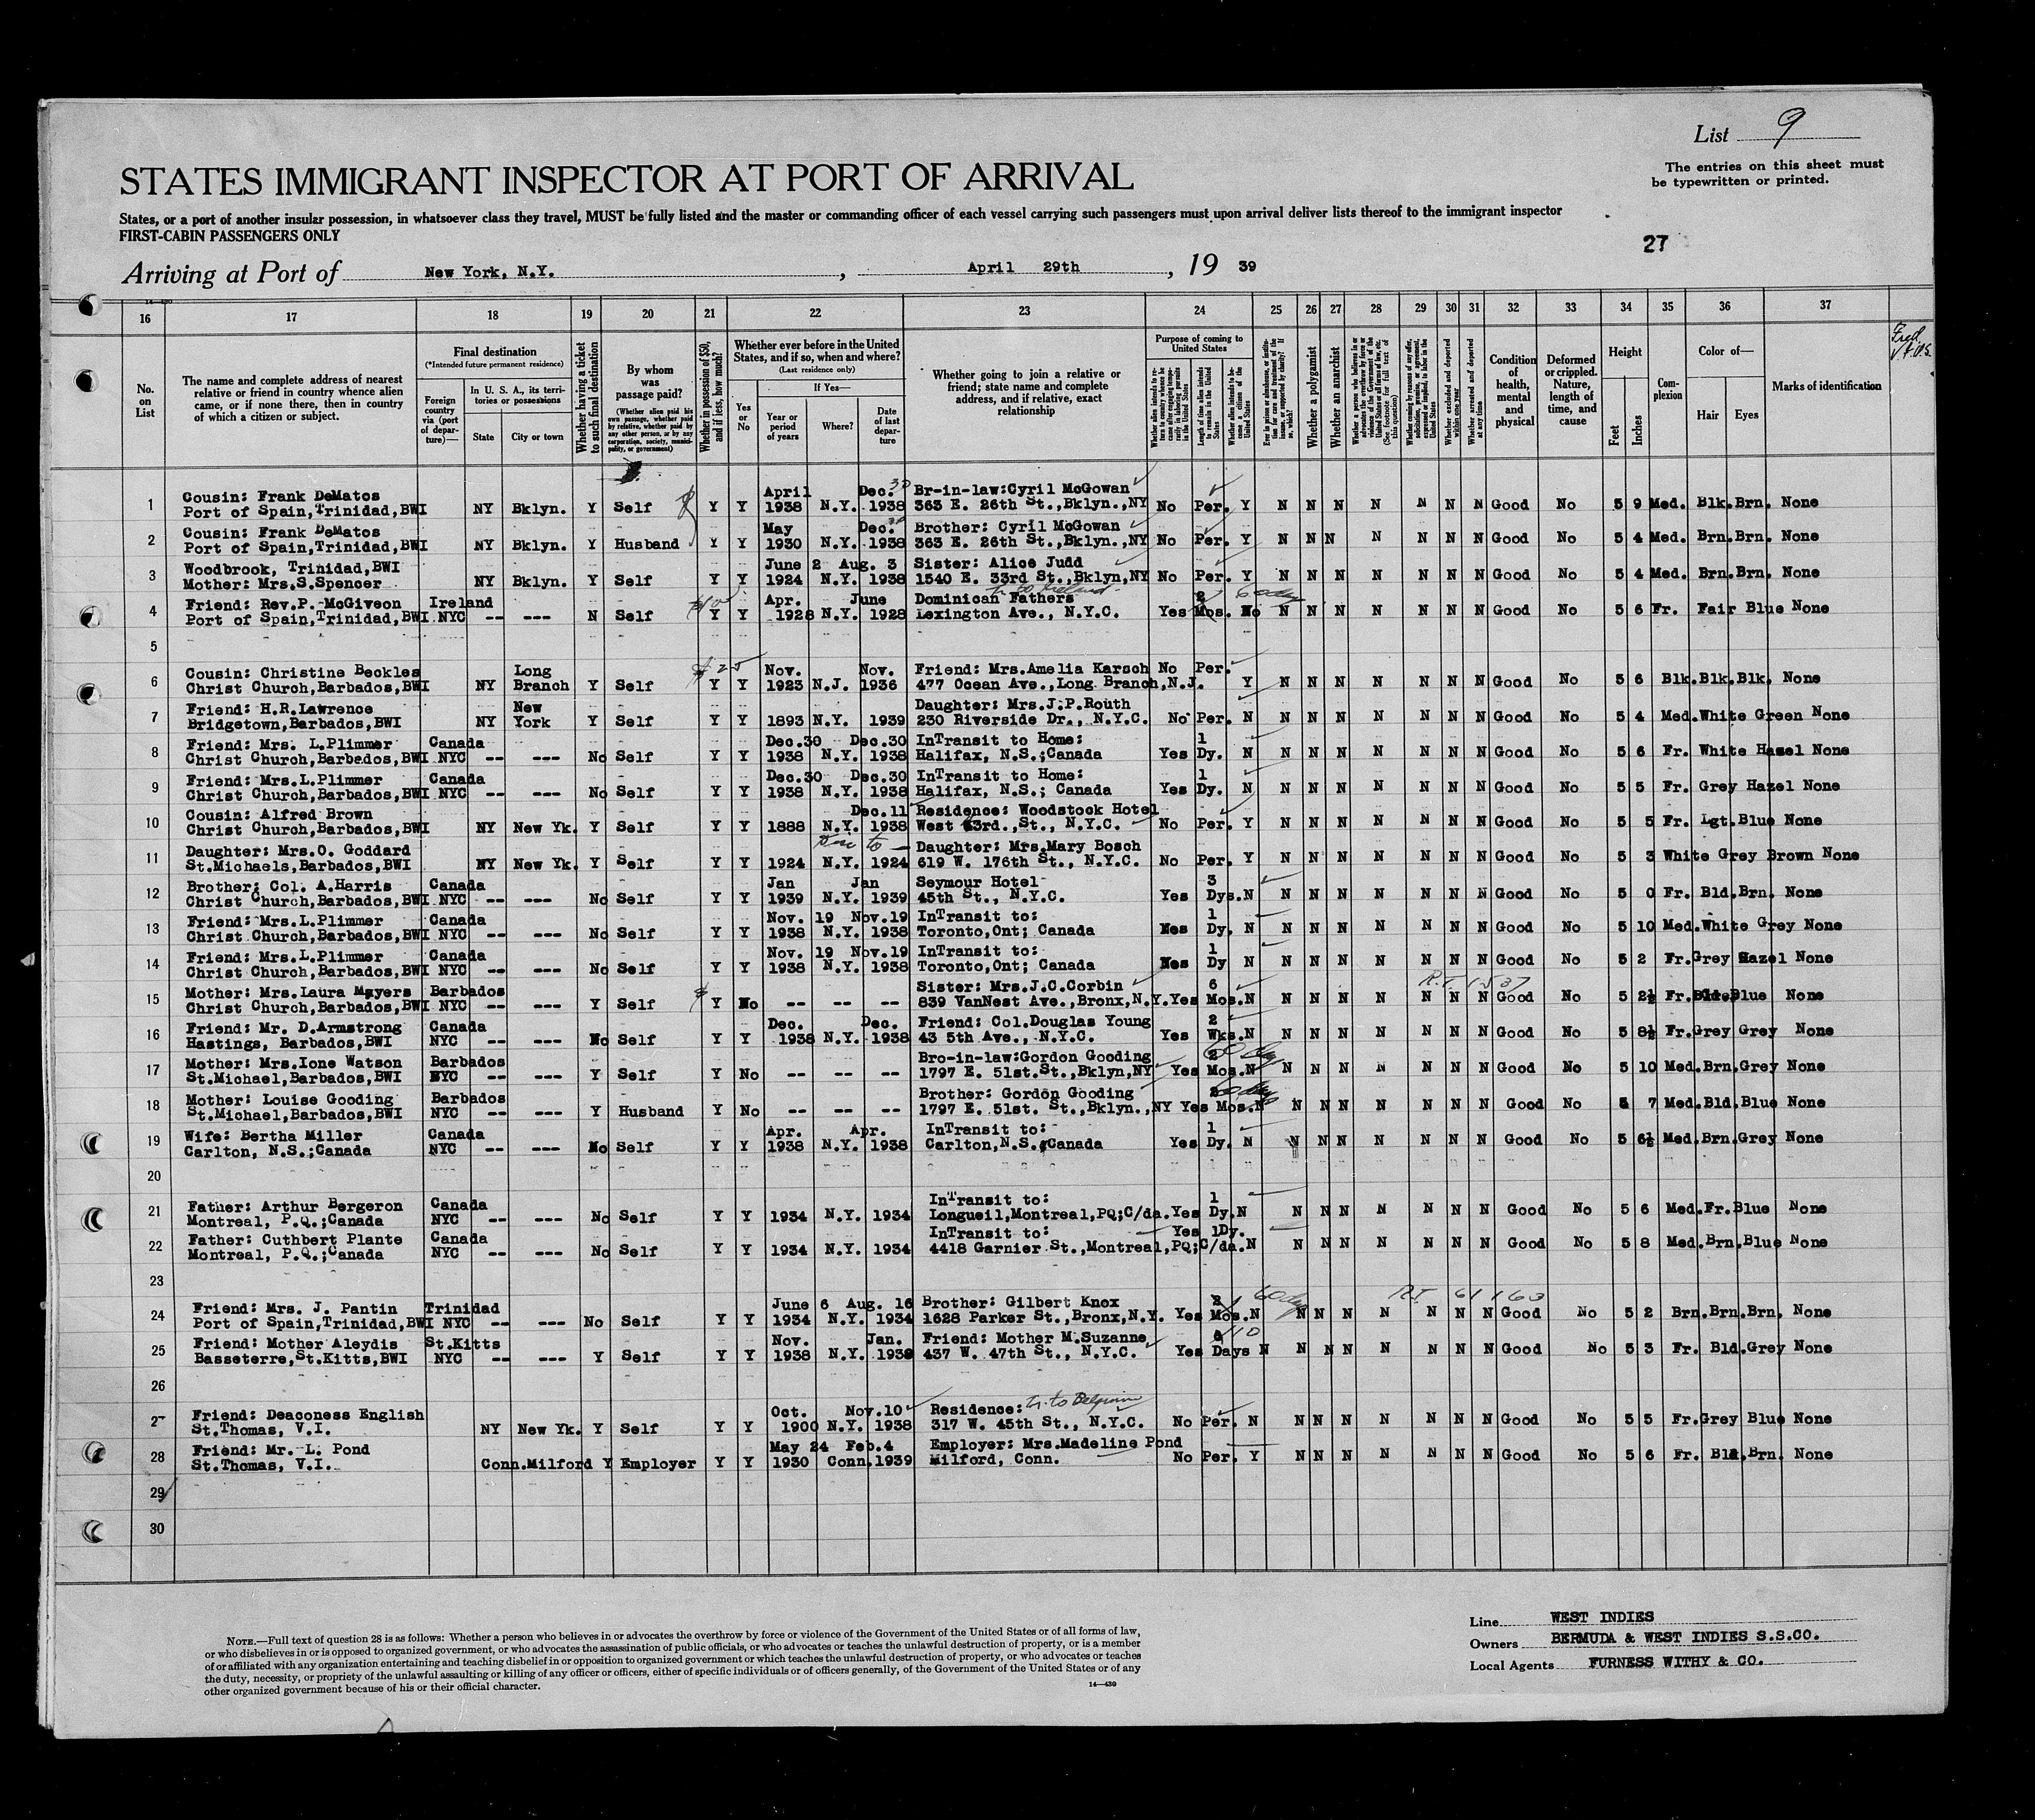 List 9
The entries on this sheet must
be typewritten or printed.
STATES IMMIGRANT INSPECTOR AT PORT OF ARRIVAL
States, or a port of another insular possession, in whatsoever class they travel, MUST be fully listed and the master or commanding officer of each vessel carrying such passengers must upon arrival deliver lists thereof to the immigrant inspector
FIRST-CABIN PASSENGERS ONLY
27
Arriving at Port of New York, N.Y. , April 29th , 19 39
14—430
16 17 18 19 20 21 22 23 24 25 26 27 28 29 30 31 32 33 34 35 36 37
No. on List
The name and complete address of nearest relative or friend in country whence alien came, or if none there, then in country of which a citizen or subject.
Final destination
(*Intended future permanent residence)
Foreign country via (port of departure)—
In U. S. A., its territories or possessions
State
City or town
Whether having a ticket to such final destination
By whom was passage paid?
(Whether alien paid his own passage, whether paid by relative, whether paid by any other person, or by any corporation, society, municipality, or government)
Whether in possession of $50, and if less, how much?
Whether ever before in the United States, and if so, when and where?
(Last residence only)
Yes or No
If Yes—
Year or period of years
Where?
Date of last departure
Whether going to join a relative or friend; state name and complete address, and if relative, exact relationship
Purpose of coming to United States
Length of time alien intends to remain in the United States
Whether alien intends to become a citizen of the United States
Whether a polygamist
Whether an anarchist
Whether excluded and deported within one year
Whether arrested and deported at any time
Condition of health, mental and physical
Deformed or crippled. Nature, length of time, and cause
Height
Feet
Inches
Complexion
Color of—
Hair
Eyes
Marks of identification
1 Cousin: Frank DeMatos April Dec. 30 Br-in-law:Cyril McGowan
Port of Spain,Trinidad,BWI NY Bklyn. Y Self Y Y 1938 N.Y. 1938 363 E. 26th St.,Bklyn.,NY No Per. Y N N N N N N N Good No 5 9 Med. Blk.Brn. None
2 Cousin: Frank DeMatos May Dec. Brother: Cyril McGowan
Port of Spain,Trinidad,BWI NY Bklyn. Y Husband Y Y 1930 N.Y. 1938 363 E. 26th St.,Bklyn.,NY No Per. Y N N N N N N N Good No 5 4 Med. Brn.Brn. None
3 Woodbrook, Trinidad,BWI June 2 Aug. 3 Sister: Alice Judd
Mother: Mrs.S.Spencer NY Bklyn. Y Self Y Y 1924 N.Y. 1938 1540 E. 33rd St.,Bklyn,NY No Per. Y N N N N N N N Good No 5 4 Med. Brn.Brn. None
4 Friend: Rev.P.-McGiveon Ireland Apr. June Dominican Fathers 2
Port of Spain,Trinidad,BWI NYC -- --- N Self Y Y 1928 N.Y. 1928 Lexington Ave., N.Y.C. Yes Mos. No N N N N N N N Good No 5 6 Fr. Fair Blue None
5
6 Cousin: Christine Beckles Long $25 Nov. Nov. Friend: Mrs.Amelia Karsch No Per.
Christ Church,Barbados,BWI NY Branch Y Self Y Y 1923 N.J. 1936 477 Ocean Ave.,Long Branch,N.J. Y N N N N N N N Good No 5 6 Blk.Blk.Blk. None
7 Friend: H.R.Lawrence New Daughter: Mrs.J.P.Routh
Bridgetown,Barbados,BWI NY York Y Self Y Y 1893 N.Y. 1939 230 Riverside Dr., N.Y.C. No Per. N N N N N N N N Good No 5 4 Med.White Green None
8 Friend: Mrs. L.Plimmer Canada Dec.30 Dec.30 InTransit to Home: 1
Christ Church,Barbados,BWI NYC -- --- No Self Y Y 1938 N.Y. 1938 Halifax, N.S.;Canada Yes Dy. N N N N N N N N Good No 5 6 Fr. White Hazel None
9 Friend: Mrs.L.Plimmer Canada Dec.30 Dec.30 InTransit to Home: 1
Christ Church,Barbados,BWI NYC -- --- No Self Y Y 1938 N.Y. 1938 Halifax, N.S.; Canada Yes Dy. N N N N N N N N Good No 5 5 Fr. Grey Hazel None
10 Cousin: Alfred Brown Dec.11 Residence: Woodstock Hotel
Christ Church,Barbados,BWI NY New Yk. Y Self Y Y 1888 N.Y. 1938 West 43rd.,St., N.Y.C. No Per. Y N N N N N N N Good No 5 5 Fr. Lgt.Blue None
11 Daughter: Mrs.O. Goddard Daughter: Mrs.Mary Bosch
St.Michaels,Barbados,BWI NY New Yk. Y Self Y Y 1924 N.Y. 1924 619 W. 176th St., N.Y.C. No Per. Y N N N N N N N Good No 5 3 White Grey Brown None
12 Brother: Col. A.Harris Canada Jan Jan Seymour Hotel 3
Christ Church,Barbados,BWI NYC -- --- No Self Y Y 1939 N.Y. 1939 45th St., N.Y.C. Yes Dys.N N N N N N N N Good No 5 0 Fr. Bld.Brn. None
13 Friend: Mrs.L.Plimmer Canada Nov. 19 Nov.19 InTransit to: 1
Christ Church,Barbados,BWI NYC -- --- No Self Y Y 1938 N.Y. 1938 Toronto,Ont; Canada Yes Dy. N N N N N N N N Good No 5 10 Med.White Grey None
14 Friend: Mrs.L.Plimmer Canada Nov. 19 Nov.19 InTransit to: 1
Christ Church,Barbados,BWI NYC -- --- No Self Y Y 1938 N.Y. 1938 Toronto,Ont; Canada Yes Dy N N N N N N N N Good No 5 2 Fr.Grey Hazel None
15 Mother: Mrs.Laura Mayers Barbados Sister: Mrs.J.C.Corbin 6
Christ Church,Barbados,BWI NYC -- --- Y Self Y No -- -- -- 839 VanNest Ave.,Bronx,N.Y.Yes Mos.N N N N N N N N Good No 5 2½ Fr. Blue None
16 Friend: Mr. D.Armstrong Canada Dec. Dec. Friend: Col.Douglas Young 2
Hastings, Barbados,BWI NYC -- --- No Self Y Y 1938 N.Y. 1938 43 5th Ave., N.Y.C. Yes Wks.N N N N N N N N Good No 5 8½ Fr.Grey Grey None
17 Mother: Mrs.Ione Watson Barbados Bro-in-law:Gordon Gooding 2
St.Michael,Barbados,BWI NYC -- --- Y Self Y No -- -- -- 1797 E. 51st.St.,Bklyn,NY Yes Mos.N N N N N N N N Good No 5 10 Med.Brn.Grey None
18 Mother: Louise Gooding Barbados Brother: Gordon Gooding
St.Michael,Barbados,BWI NYC -- --- Y Husband Y No -- -- -- 1797 E. 51st. St.,Bklyn.,NY Yes Mos.N N N N N N N N Good No 5 7 Med.Bld.Blue None
19 Wife: Bertha Miller Canada Apr. Apr. InTransit to: 1
Carlton, N.S.;Canada NYC -- --- No Self Y Y 1938 N.Y. 1938 Carlton,N.S.;Canada Yes Dy. N N N N N N N N Good No 5 6½ Med.Brn.Grey None
20
21 Father: Arthur Bergeron Canada InTransit to: 1
Montreal, P.Q.;Canada NYC -- --- No Self Y Y 1934 N.Y. 1934 Longueil,Montreal,PQ;C/da.Yes Dy.N N N N N N N N Good No 5 6 Med.Fr.Blue None
22 Father: Cuthbert Plante Canada InTransit to: Yes 1Dy.
Montreal, P.Q.;Canada NYC -- --- No Self Y Y 1934 N.Y. 1934 4418 Garnier St.,Montreal,PQ;C/da.N N N N N N N N Good No 5 8 Med.Brn.Blue None
23
24 Friend: Mrs. J. Pantin Trinidad June 6 Aug. 16 Brother: Gilbert Knox 2
Port of Spain,Trinidad,BWI NYC -- --- No Self Y Y 1934 N.Y. 1934 1628 Parker St.,Bronx,N.Y. Yes Mos.N N N N N N N N Good No 5 2 Brn.Brn.Brn. None
25 Friend: Mother Aleydis St.Kitts Nov. Jan. Friend: Mother M.Suzanne
Basseterre,St.Kitts,BWI NYC -- --- Y Self Y Y 1938 N.Y. 1939 437 W. 47th St., N.Y.C. Yes Days N N N N N N N N Good No 5 3 Fr. Bld.Grey None
26
27 Friend: Deaconess English Oct. Nov.10 Residence: tr. to Belgium
St.Thomas, V.I. NY New Yk. Y Self Y Y 1900 N.Y. 1938 317 W. 45th St., N.Y.C. No Per. N N N N N N N N Good No 5 5 Fr.Grey Blue None
28 Friend: Mr. L. Pond May 24 Feb.4 Employer: Mrs.Madeline Pond
St.Thomas, V.I. Conn.Milford Y Employer Y Y 1930 Conn.1939 Milford, Conn. No Per. Y N N N N N N N Good No 5 6 Fr. Brn. None
29
30
NOTE.—Full text of question 28 is as follows: Whether a person who believes in or advocates the overthrow by force or violence of the Government of the United States or of all forms of law,
or who disbelieves in or is opposed to organized government, or who advocates the assassination of public officials, or who advocates or teaches the unlawful destruction of property, or is a member
of or affiliated with any organization entertaining and teaching disbelief in or opposition to organized government or which teaches the unlawful destruction of property, or who advocates or teaches
the duty, necessity, or propriety of the unlawful assaulting or killing of any officer or officers, either of specific individuals or of officers generally, of the Government of the United States or of any
other organized government because of his or their official character.
14—430
Line WEST INDIES
Owners BERMUDA & WEST INDIES S.S.CO.
Local Agents FURNESS WITHY & CO.